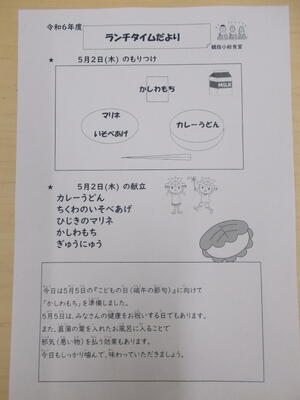 令和6年度
ランチタイムだより
小給食室
★ 5月2日(木) のもりつけ
かしわもち
MILK
マリネ
いそべあげ
カレーうどん
★ 5月2日(木) の献立
カレーうどん
ちくわのいそべあげ
ひじきのマリネ
かしわもち
ぎゅうにゅう
今日は5月5日の『こどもの日(端午の節句)』に向けて
「かしわもち」を準備しました。
5月5日は、みなさんの健康をお祝いする日でもあります。
また、菖蒲の葉を入れたお風呂に入ることで
邪気(悪い物)を払う効果もあります。
今日もしっかり噛んで、味わっていただきましょう。